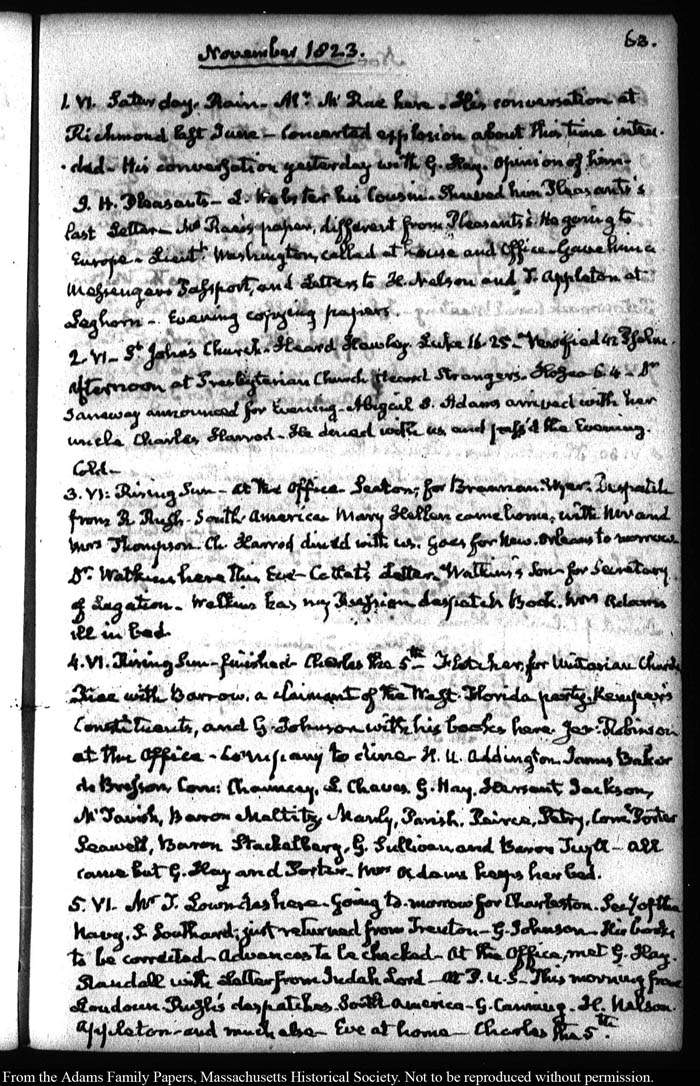 63.
November 1823.
1. VI. Saturday. Rain - Mr. McRae here - His conversation at
Richmond last June - Concerted explosion about this time inten-
-ded - His conversation yesterday with G. Hay. Opinion of him -
J. H. Pleasants - D. Webster his Cousin. Shewed him Pleasants's
last Letter - McRae's paper, different from Pleasants's. He going to
Europe - Lieutt. Washington, called at house and Office - Gave him a
Messengers Passport, and Letters to H. Nelson and T. Appleton at
Leghorn - Evening copying papers.
2. VI - St. Johns Church. Heard Hawley. Luke 16. 25 - Versified 42 Psalm.
afternoon at Presbyterian Church Heard Strangers. Hosea 6. 4 - Dr.
Janeway announced for Evening - Abigail S. Adams arrived with her
uncle Charles Harrod - He dined with us and pass'd the Evening.
Cold -
3. VI: Rising Sun - at the Office - Seaton, for Despatch
from R. Rush - South America Mary Hellen came home, with Mr and
Mrs Thompson - Ch. Harrod dined with us. Goes for New-Orleans to morrow
Dr. Watkins here this Eve - Letter - Watkins's Son - for Secretary
of Legation - Watkins has my Russian despatch Book. Mrs Adams
ill in bed.
4. VI. Rising Sun - finished Charles the 5th - Fletcher, for Unitarian Church
with Barrow, a claimant of the West-Florida party, Kemper's
Constituents, and G. Johnson with his books here. Jas. Robinson
at the Office - Company to dine H. U. Addington, James Baker
de Bresson, Com: Chauncey, L. Chaves, G. Hay, Jackson,
McTavish, Baron Maltitz, Manly, Parish, Peirce, Petry, Com: Porter
Seawell, Baron Stackelberg, G. Sullivan and Baron Tuyll - all
came but G. Hay and Porter - Mrs Adams keeps her bed.
5. VI. Mr. T. Lowndes here - Going to-morrow for Charleston - Secy. of the
Navy, S. Southard; just returned from Trenton - G. Johnson - His books
to be corrected - Advances to be checked - At the Office, met G. Hay.
Randall with Letter from Judah Lord - at P. U. S - This morning from
London - Rush's despatches. South America - G. Canning - H. Nelson
Appleton - and much else - Eve at home - Charles the 5th.
From the Adams Family Papers, Massachusetts Historical Society. Not to be reproduced without permission.